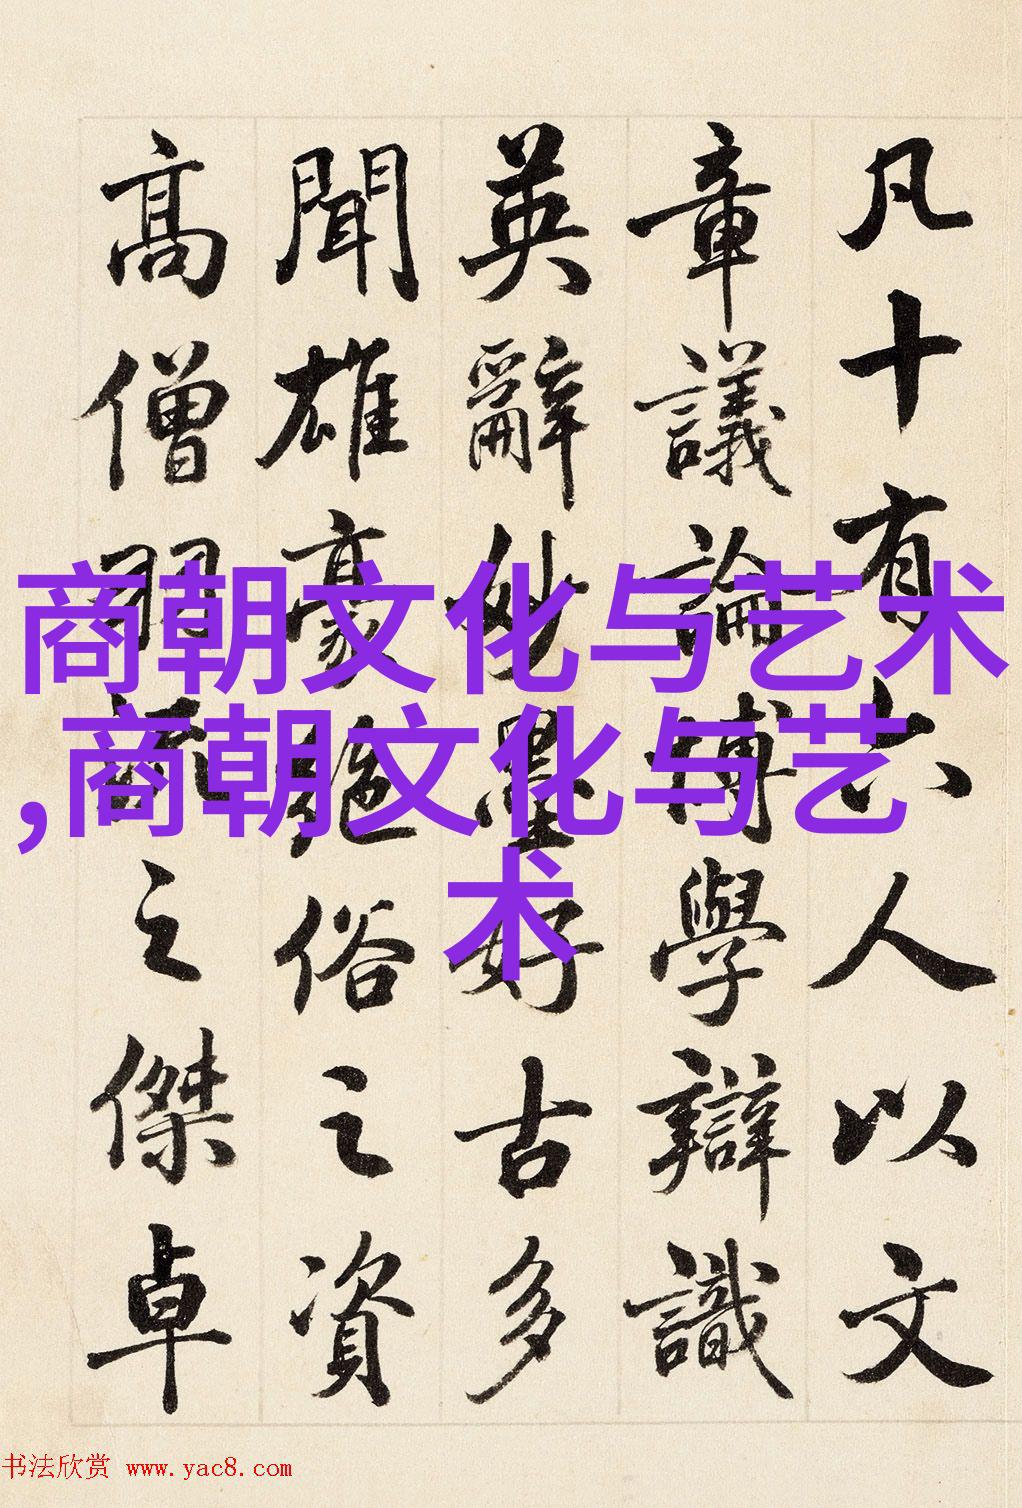 凡十有六人以文
章議論博學辯識
英辭妙墨好古多
聞雄豪絕俗之資
高僧羽流之傑卓
商朝文化与艺术
,商朝文化与艺
术
书法欣赏 www.yac8.com